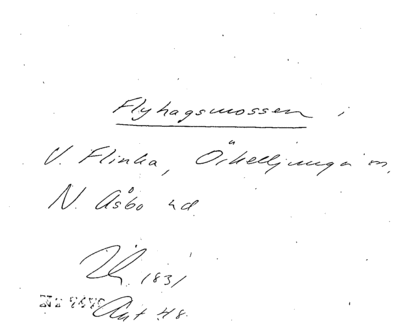 Flyhagsmossen i
V. Flinka, Örkelljunga sn,
N. Åsbo hd.
1831
Ant 48